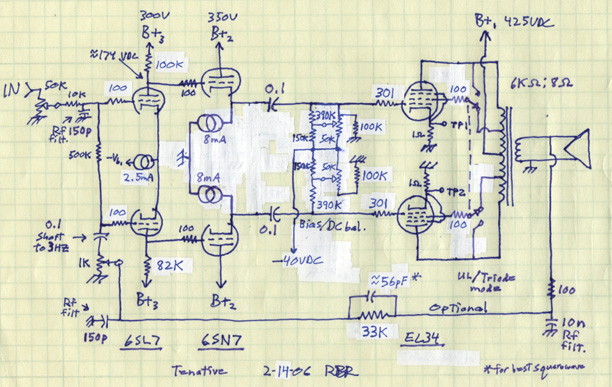 300V
350V
B+3
B+2
B+, 425VDC
≈174 VDC
100K
IN
50K
10K
100
100
0.1
301
100
6KΩ:8Ω
Rf
filt.
150p
8mA
390K
150K
50K
100K
1Ω
TP1
500K
2.5mA
8mA
150K
50K
100K
1Ω
TP2
390K
0.1
Shart
to 3HZ
100
100
0.1
Bias/DC bal.
301
100
1K
82K
-40VDC
UL/Triode
mode
B+3
B+2
≈56pF*
Optional
100
Rf
filt
150p
33K
10n
Rf
filt.
6SL7
6SN7
EL34
Tenative
2-14-06 RBR
*for best squarewave